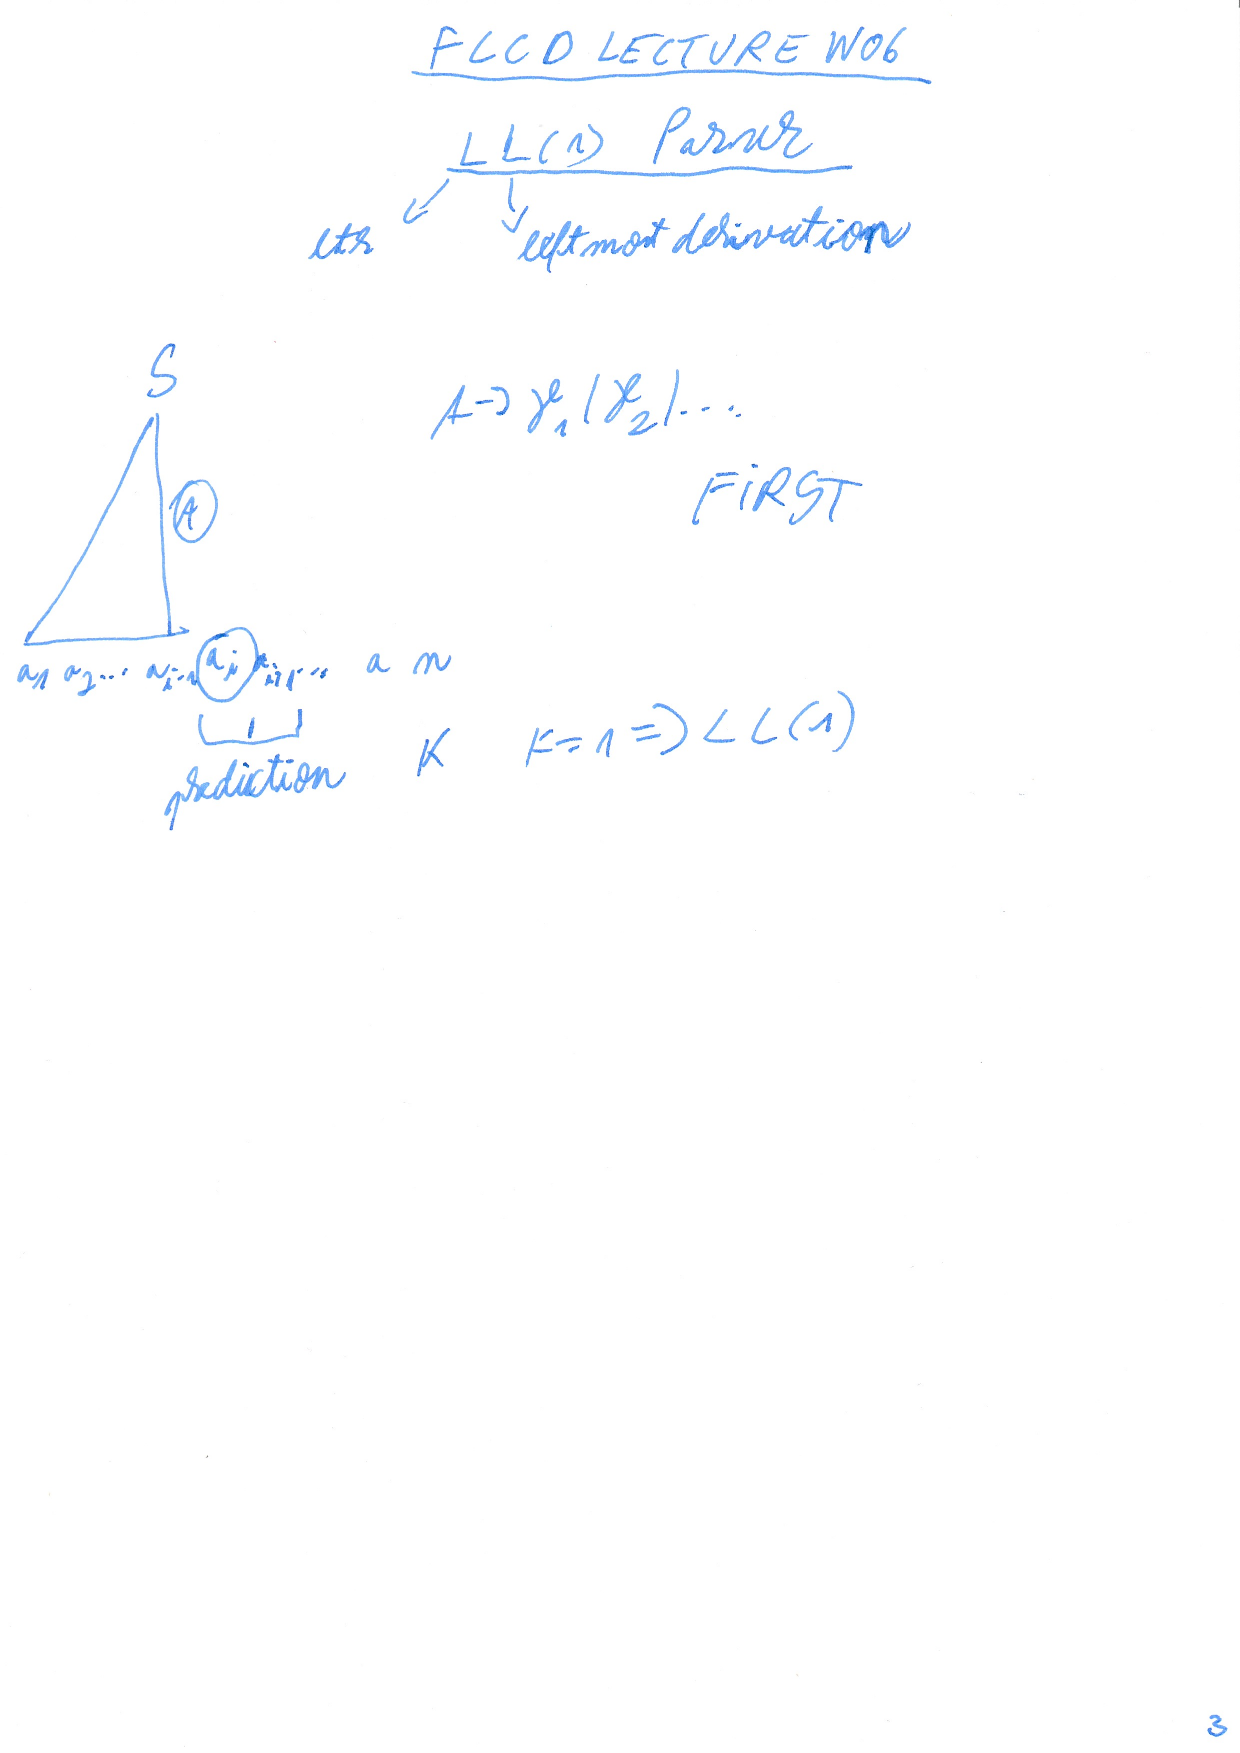 FLCD LECTURE W06
LL(1) Parser
ltr
leftmost derivation
S
A -> γ1 | γ2 | ...
FiRST
A
a1 a2 ... ai-1 ai ai+1 ... an
prediction
K K=1 => LL(1)
3